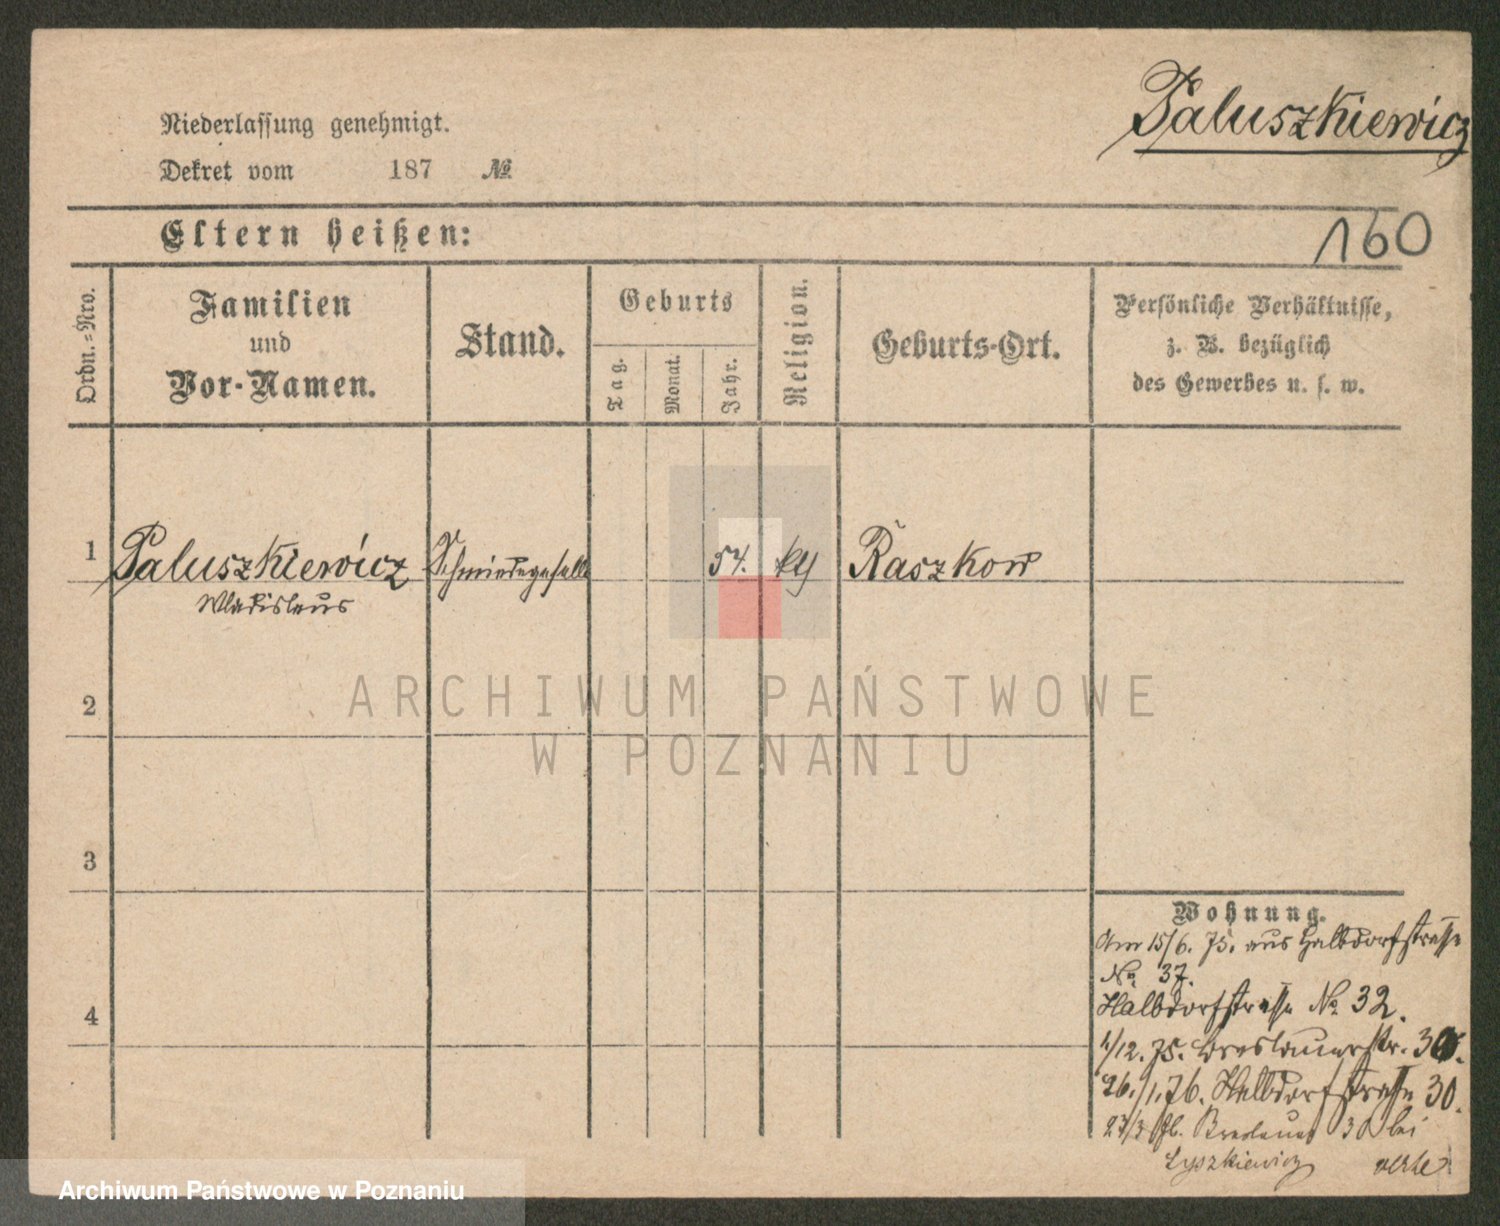 Paluszkiewicz
Niederlassung genehmigt.
Dekret vom 187 №
160
Eltern heißen:
Ordn.=Nro.
Familien
und
Vor-Namen.
Stand.
Geburts
Tag.
Monat.
Jahr.
Religion.
Geburts-Ort.
Persönliche Verhältnisse,
z. B. bezüglich
des Gewerbes u. s. w.
1 Paluszkiewicz Schmiedegeselle 54. Raszkow
Wladislaus
2
ARCHIWUM PAŃSTWOWE
W POZNANIU
3
Wohnung.
Am 15/6. 75. aus Halbdorfstrasse
№ 37.
4
Halbdorfstrasse № 32.
1/12. 75. Breslauerstr.
26./1. 76. Halbdorfstrasse 30.
27/3 76. Breslauer 30 bei
Lyszkiewicz
Archiwum Państwowe w Poznaniu